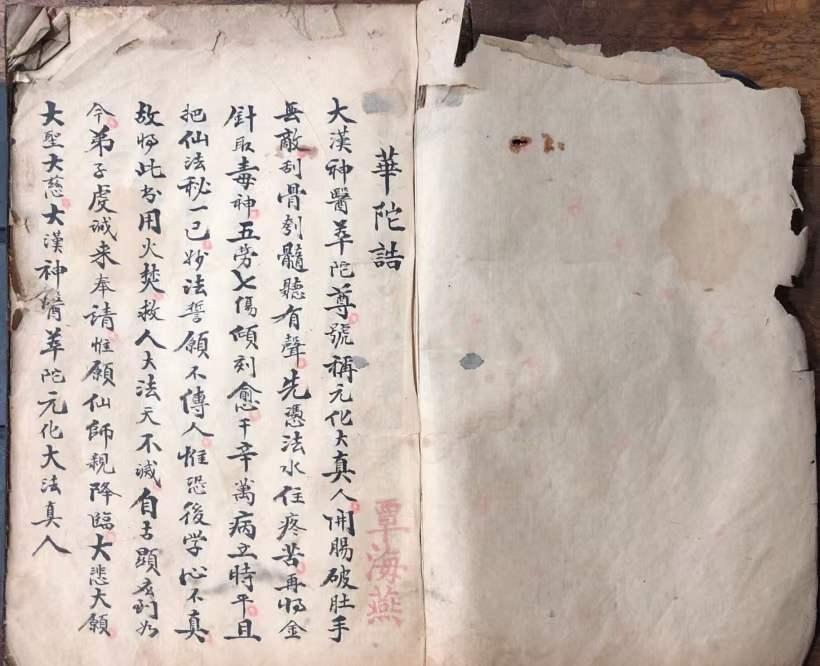 華陀誥
大漢神醫華陀尊號稱元化大真人開腸破肚手
無敵刮骨刳髓聽有聲先憑法水住疼苦再将金
針取毒神五劳七傷傾刻愈千辛萬病立時平且
把仙法秘一已妙法誓願不傳人惟恐後学心不真
故将此书用火焚救人大法天不滅自古顕应到如
今弟子虔诚来奉請惟願仙師親降臨大悲大願
大聖大慈大漢神醫華陀元化大法真人
覃海燕